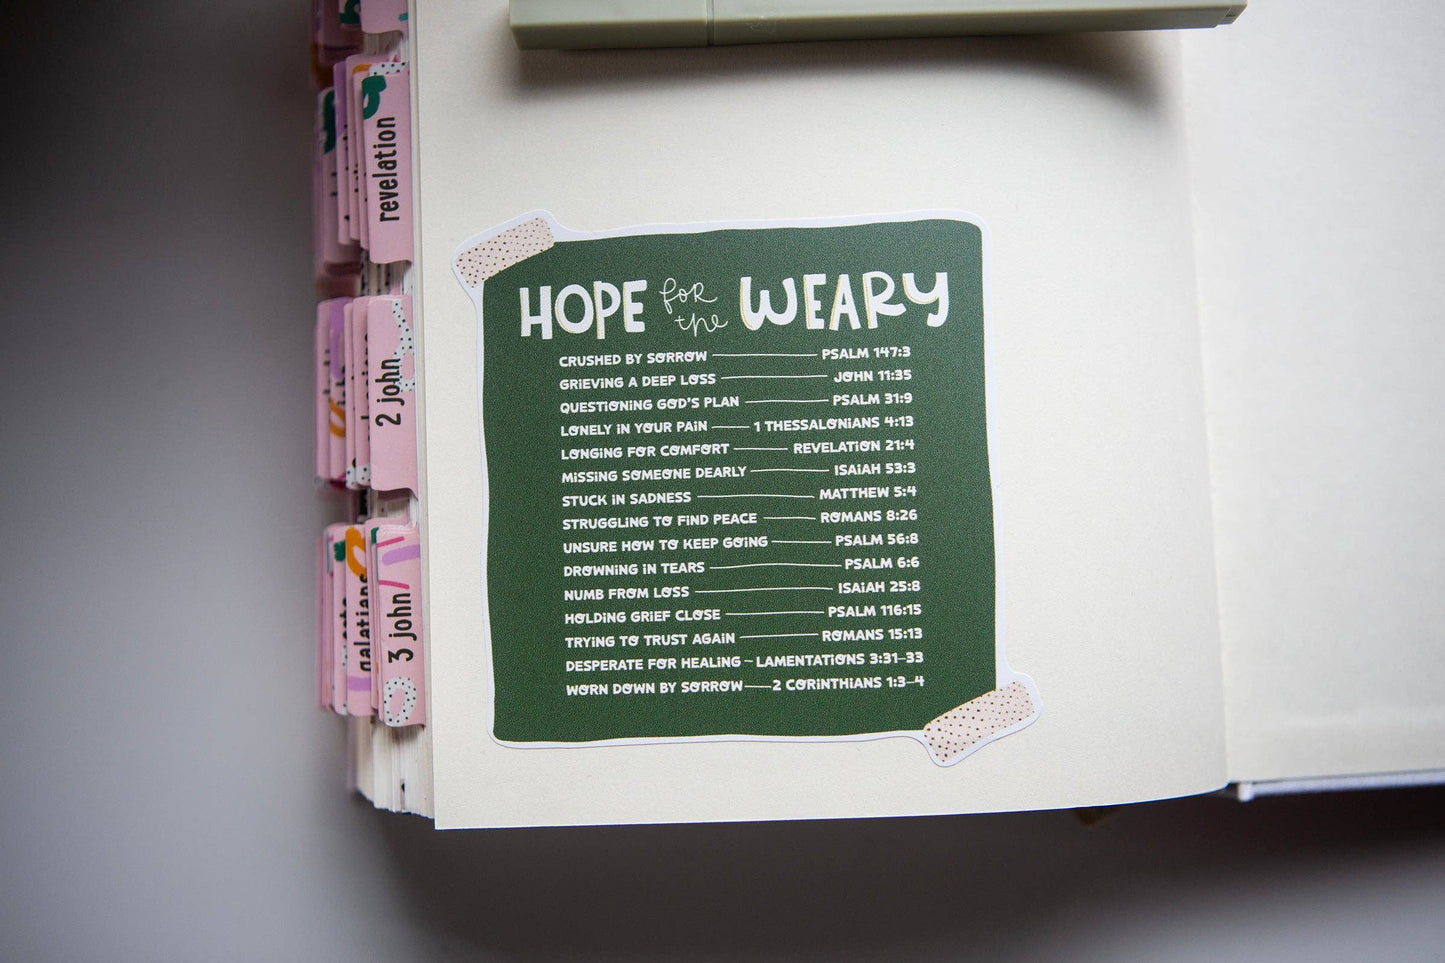 HOPE for the WEARY
CRUSHED BY SORROW PSALM 147:3
GRIEVING A DEEP LOSS JOHN 11:35
QUESTIONING GOD'S PLAN PSALM 31:9
LONELY IN YOUR PAIN 1 THESSALONIANS 4:13
LONGING FOR COMFORT REVELATION 21:4
MISSING SOMEONE DEARLY ISAIAH 53:3
STUCK IN SADNESS MATTHEW 5:4
STRUGGLING TO FIND PEACE ROMANS 8:26
UNSURE HOW TO KEEP GOING PSALM 56:8
DROWNING IN TEARS PSALM 6:6
NUMB FROM LOSS ISAIAH 25:8
HOLDING GRIEF CLOSE PSALM 116:15
TRYING TO TRUST AGAIN ROMANS 15:13
DESPERATE FOR HEALING LAMENTATIONS 3:31-33
WORN DOWN BY SORROW 2 CORINTHIANS 1:3-4
revelation
2 john
3 john
galatians